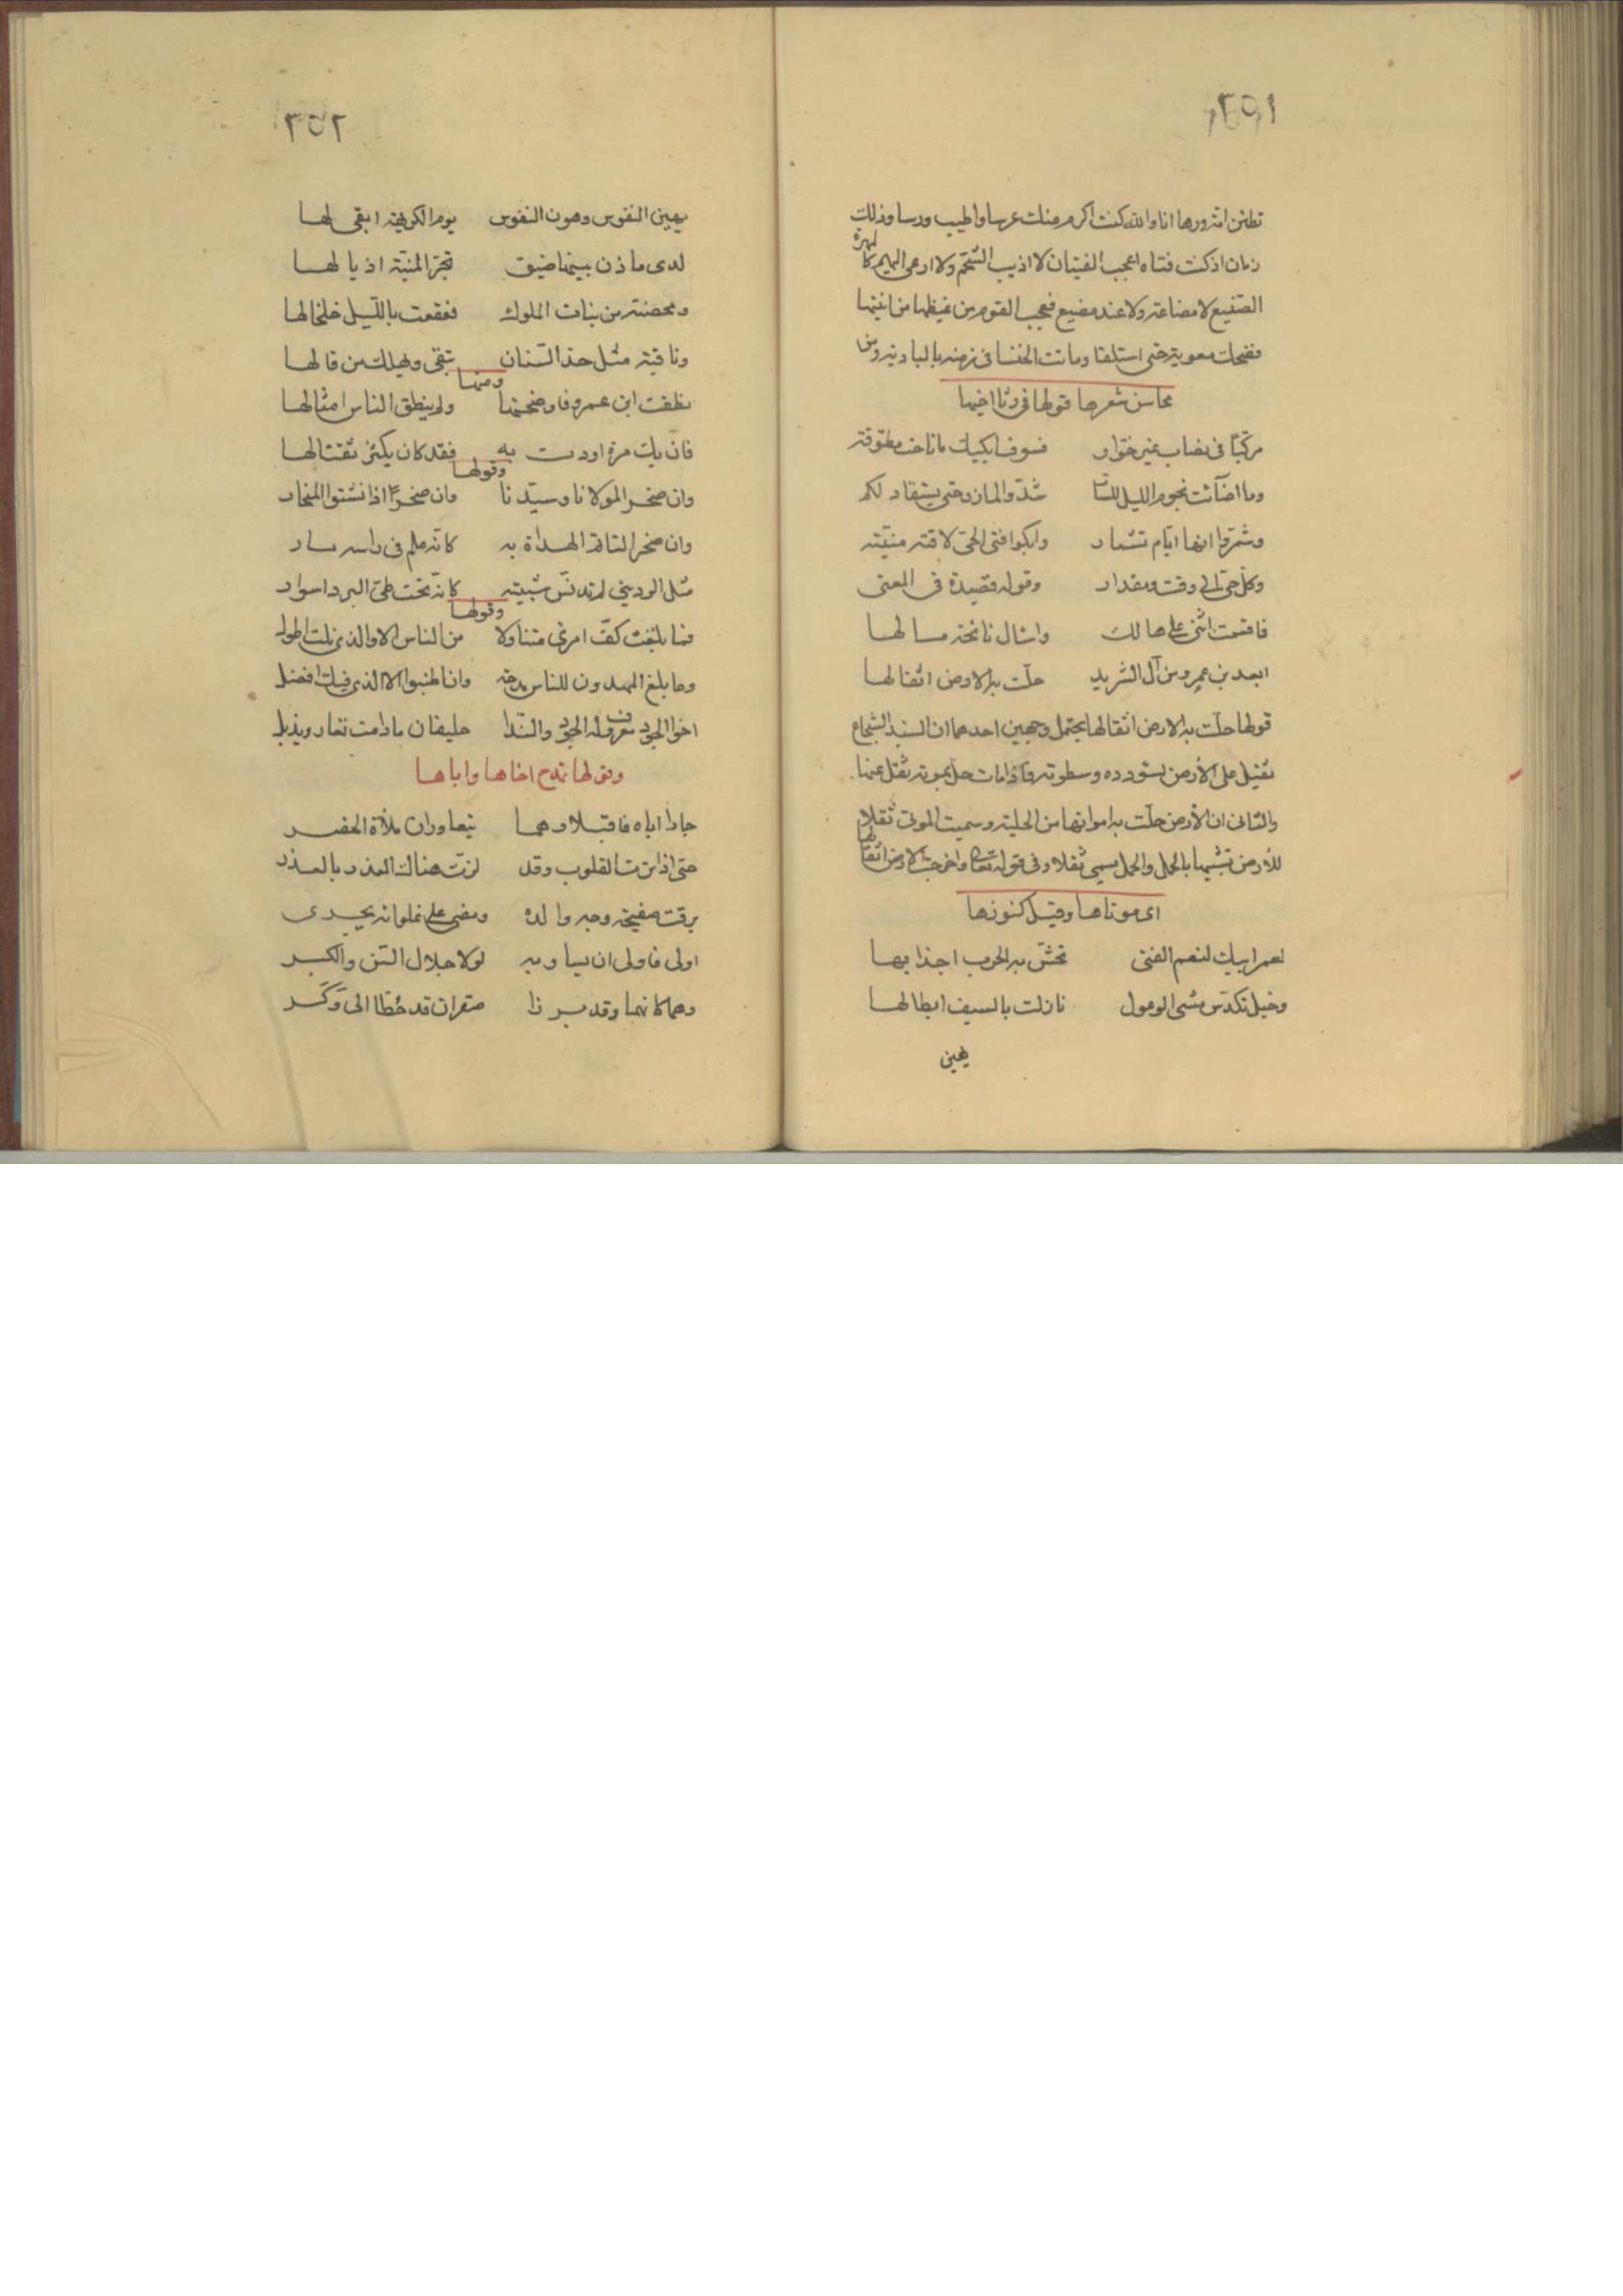 ٣٥١
تظن انه ورها انا والله كنت اكرم منك عرسا واطيب ورسا وذلك
زمان اذ كنت فتاه اعجب الفتيان لا اذيب الشحم ولا ارعى البهم كالمهرة
الصنيع لا مضاعة ولا عند مضيع فعجب القوم من غيظها من ابنتها
فضحك معوية حتى استلقا وماتت الخنسا فى زمنه بالبادية ومن
محاسن شعرها قولها فى رثا اخيها
مركبًا فى نصاب غير خوّار فسوف ابكيك ما ناحت مطوّقة
وما اضآئت نجوم الليل للسار شدّوا المازر حتى يستقاد لكم
وشمّروا انها ايّام تشمار وابكوا فتى الحىّ لاقته منيّته
وكل حىّ الى وقت ومقدار وقوله قصيدة فى المعنى
فاقسمت اثنى على هالك واسال نائحة مسالها
ابعد بن عمرو من آل الشريد حلّت به الارض اثقالها
قولها حلّت به الارض اثقالها يحتمل وجهين احدهما ان السيد الشجاع
ثقيل على الأرض بسودده وسطوته فاذا مات حلّ بموته ثقل عنها
والثانى ان الأرض حلّت به امواتها من الحلية وسميت الموتى ثقلا
للأرض تشبيها بالحمل والحمل يسمى ثقلا وفى قوله تعالى واخرجت الارض اثقالها
اى موتاها وقيل كنوزها
لعمر ابيك لنعم الفتى تحشّ به الحرب اجذابها
وخيل تكدّس مشى الوعول نازلت بالسيف ابطالها
يهين
٣٥٢
يهين النفوس وهون النفوس يوم الكريهة ابقى لها
لدى مازن بينها ضيق تجرّ المنيّة اذيالها
ومحصنة من بنات الملوك قعقعت بالليل خلخالها
وقافية مثل حدّ السّنان تبقى ويهلك من قالها
ومنها
نطقت ابن عمرو فاوضحتها ولم ينطق الناس امثالها
فان يك مرة اودت به فقد كان يكثر تقتالها
وقولها
وان صخر المولانا وسيّدنا وان صخرًا اذا نشتوا لنحار
وان صخر التاتمّ الهداة به كانّه علم فى راسه نار
مثل الردينى لم تدنّس شبيبته كانّه تحت طىّ البرد اسوار
وقولها
فما بلغت كفّ امرئ متناولا من الناس الا والذى نلت اطول
وما بلغ المهدون للناس مدحة وان اطنبوا الا الذى فيك افضل
اخو الجود معروف له الجود والنّدا حليفان ما دامت تعار ويذبل
وقولها تمدح اخاها واباها
جارا اباه فاقبلا وهما يتعاوران ملأة الحضر
حتى اذا نزت القلوب وقد لزّت هناك العذر بالعذر
برقت صفيحة وجه والده ومضى على غلوائه يجرى
اولى فاولى ان يساويه لولا جلال السّن والكبر
وهما كانهما وقد برزا صقران قد حُطّا الى وَكَر